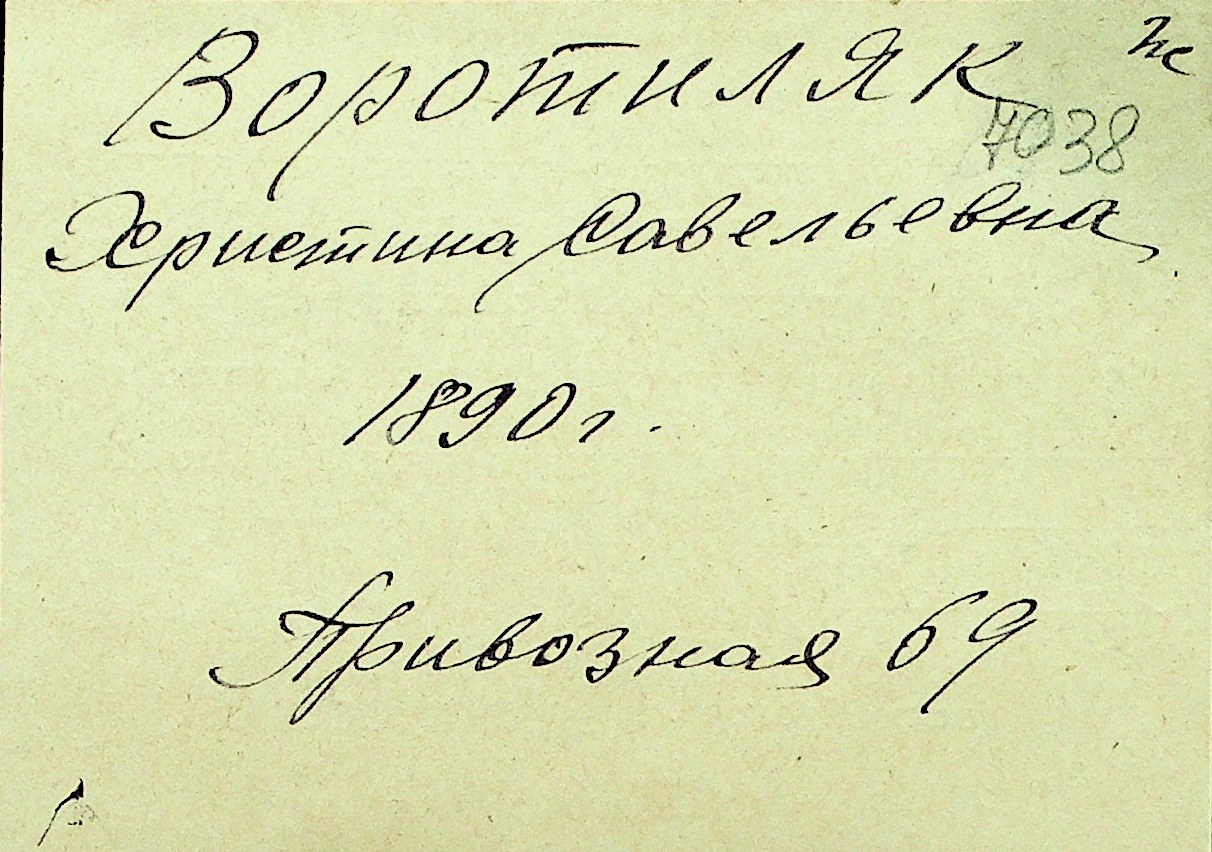 Воротиляк
7038
Христина Савельевна
1890 г.
Привозная 69